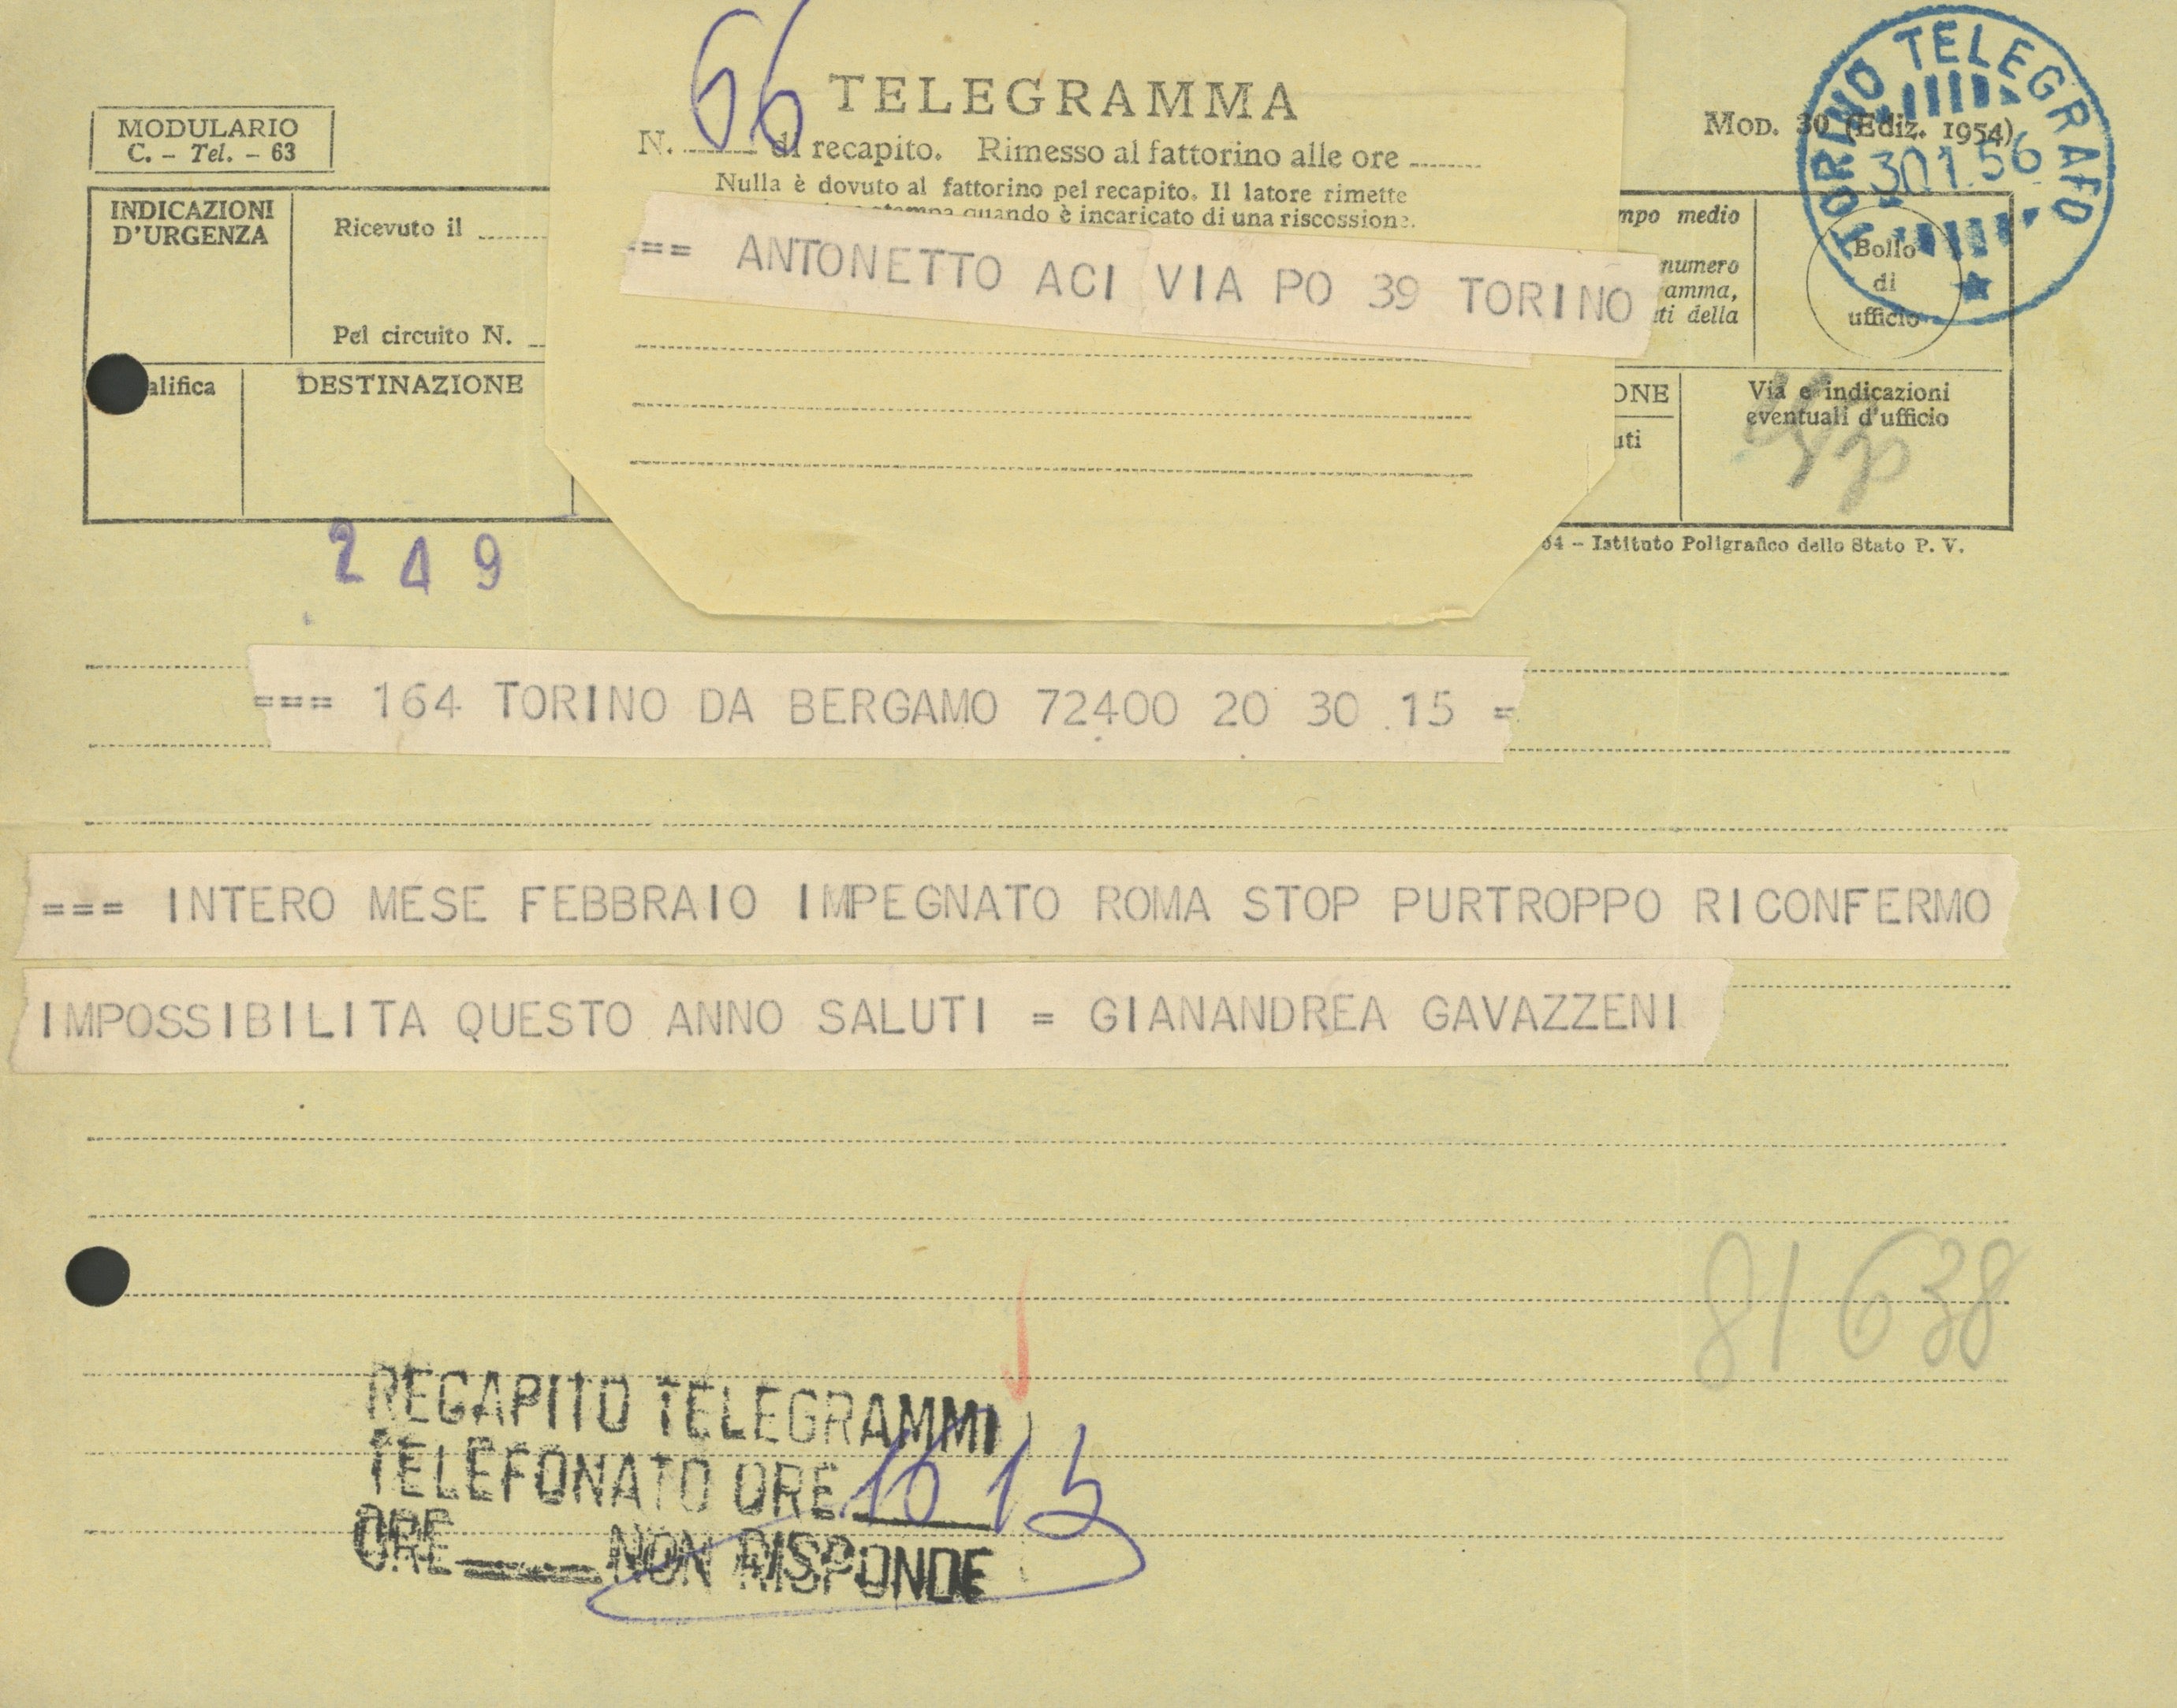 66
TELEGRAMMA
N. di recapito. Rimesso al fattorino alle ore
Nulla è dovuto al fattorino pel recapito. Il latore rimette
stampa quando è incaricato di una riscossione.
=== ANTONETTO ACI VIA PO 39 TORINO
MODULARIO
C. - Tel. - 63
Mod. 30 (Ediz. 1954)
TORINO TELEGRAFO
30.1.56
INDICAZIONI
D'URGENZA
Ricevuto il
Pel circuito N.
medio
numero
ti della
Bollo
di
ufficio
DESTINAZIONE
Via e indicazioni
eventuali d'ufficio
54 - Istituto Poligrafico dello Stato P. V.
249
=== 164 TORINO DA BERGAMO 72400 20 30 .15 =
=== INTERO MESE FEBBRAIO IMPEGNATO ROMA STOP PURTROPPO RICONFERMO
IMPOSSIBILITA QUESTO ANNO SALUTI = GIANANDREA GAVAZZENI
81638
RECAPITO TELEGRAMMI
TELEFONATO ORE 16 15
ORE NON RISPONDE